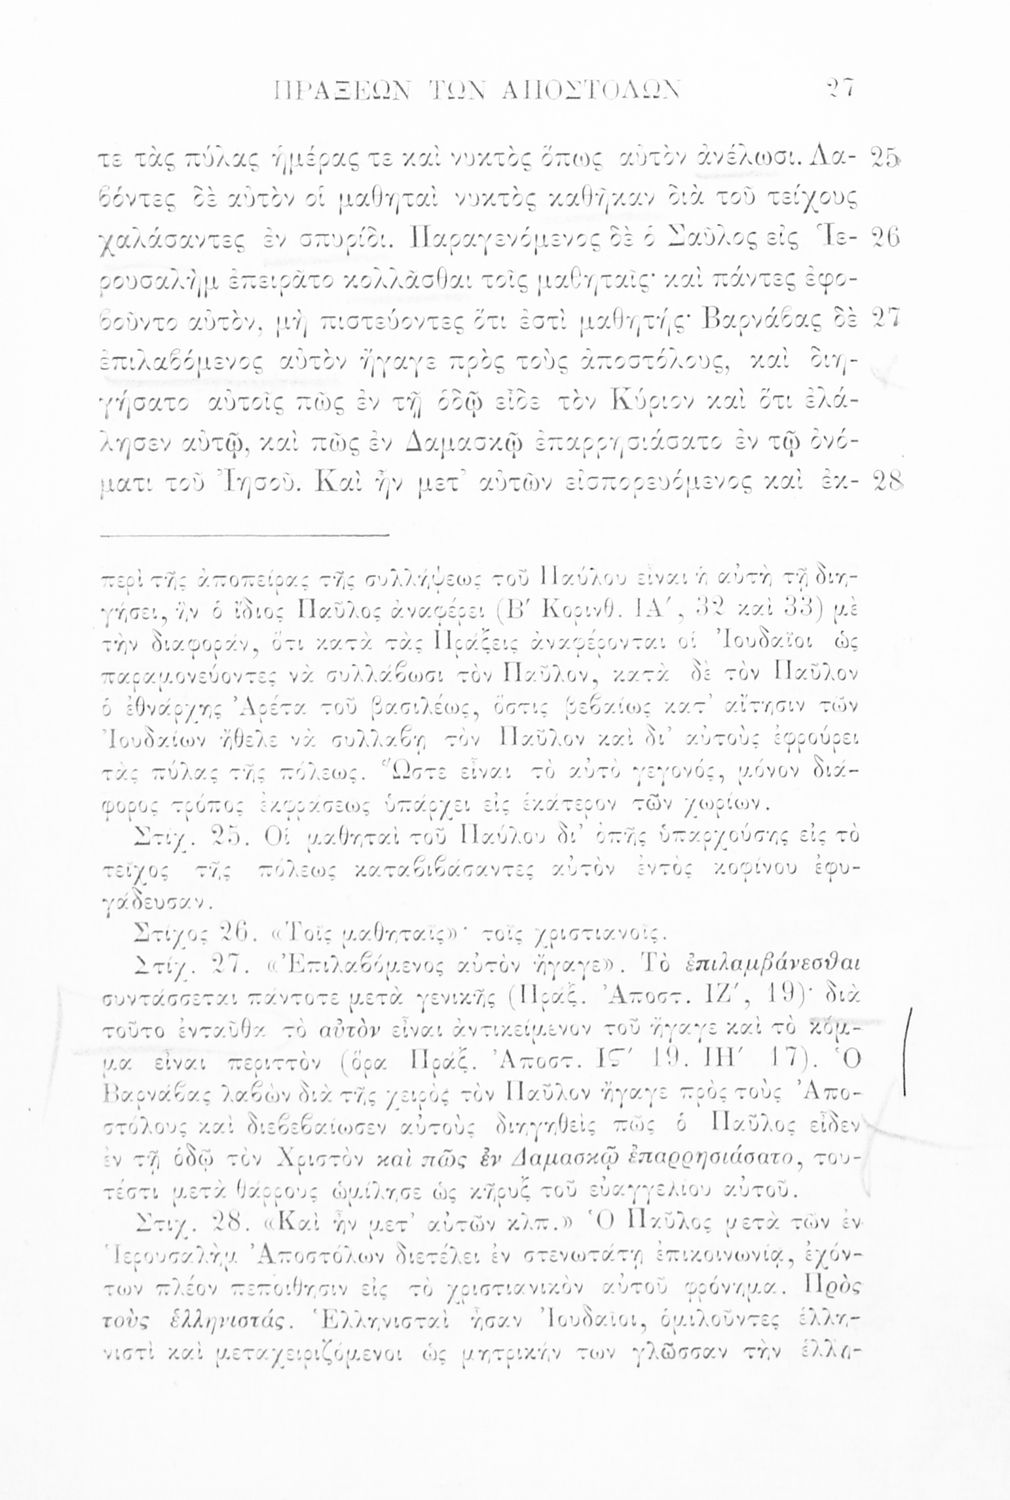 ΠΡΑΞΕΩΝ ΤΩΝ ΑΠΟΣΤΟΛΩΝ 27
τε τὰς πύλας ἡμέρας τε καὶ νυκτὸς ὅπως αὐτὸν ἀνέλωσι. Λα- 25
βόντες δὲ αὐτὸν οἱ μαθηταὶ νυκτὸς καθῆκαν διὰ τοῦ τείχους
χαλάσαντες ἐν σπυρίδι. Παραγενόμενος δὲ ὁ Σαῦλος εἰς Ἱε- 26
ρουσαλὴμ ἐπειρᾶτο κολλᾶσθαι τοῖς μαθηταῖς· καὶ πάντες ἐφο-
βοῦντο αὐτὸν, μὴ πιστεύοντες ὅτι ἐστὶ μαθητής· Βαρνάβας δὲ 27
ἐπιλαβόμενος αὐτὸν ἤγαγε πρὸς τοὺς ἀποστόλους, καὶ διη-
γήσατο αὐτοῖς πῶς ἐν τῇ ὁδῷ εἶδε τὸν Κύριον καὶ ὅτι ἐλά-
λησεν αὐτῷ, καὶ πῶς ἐν Δαμασκῷ ἐπαρρησιάσατο ἐν τῷ ὀνό-
ματι τοῦ Ἰησοῦ. Καὶ ἦν μετ' αὐτῶν εἰσπορευόμενος καὶ ἐκ- 28
περὶ τῆς ἀποπείρας τῆς συλλήψεως τοῦ Παύλου εἶναι ἡ αὐτὴ τῇ διη-
γήσει, ἣν ὁ ἴδιος Παῦλος ἀναφέρει (Β' Κορινθ. ΙΑ', 32 καὶ 33) μὲ
τὴν διαφορὰν, ὅτι κατὰ τὰς Πράξεις ἀναφέρονται οἱ Ἰουδαῖοι ὡς
παραμονεύοντες νὰ συλλάβωσι τὸν Παῦλον, κατὰ δὲ τὸν Παῦλον
ὁ ἐθνάρχης Ἀρέτα τοῦ βασιλέως, ὅστις βεβαίως κατ' αἴτησιν τῶν
Ἰουδαίων ἤθελε νὰ συλλάβῃ τὸν Παῦλον καὶ δι' αὐτοὺς ἐφρούρει
τὰς πύλας τῆς πόλεως. Ὥστε εἶναι τὸ αὐτὸ γεγονός, μόνον διά-
φορος τρόπος ἐκφράσεως ὑπάρχει εἰς ἑκάτερον τῶν χωρίων.
Στίχ. 25. Οἱ μαθηταὶ τοῦ Παύλου δι' ὀπῆς ὑπαρχούσης εἰς τὸ
τεῖχος τῆς πόλεως καταβιβάσαντες αὐτὸν ἐντὸς κοφίνου ἐφυ-
γάδευσαν.
Στίχος 26. «Τοῖς μαθηταῖς»· τοῖς χριστιανοῖς.
Στίχ. 27. «Ἐπιλαβόμενος αὐτὸν ἤγαγε». Τὸ ἐπιλαμβάνεσθαι
συντάσσεται πάντοτε μετὰ γενικῆς (Πράξ. Ἀποστ. ΙΖ', 19)· διὰ
τοῦτο ἐνταῦθα τὸ αὐτὸν εἶναι ἀντικείμενον τοῦ ἤγαγε καὶ τὸ κόμ-
μα εἶναι περιττὸν (ὅρα Πράξ. Ἀποστ. ΙϚ' 19. ΙΗ' 17). Ὁ
Βαρνάβας λαβὼν διὰ τῆς χειρὸς τὸν Παῦλον ἤγαγε πρὸς τοὺς Ἀπο-
στόλους καὶ διεβεβαίωσεν αὐτοὺς διηγηθεὶς πῶς ὁ Παῦλος εἶδεν
ἐν τῇ ὁδῷ τὸν Χριστὸν καὶ πῶς ἐν Δαμασκῷ ἐπαρρησιάσατο, του-
τέστι μετὰ θάρρους ὡμίλησε ὡς κῆρυξ τοῦ εὐαγγελίου αὐτοῦ.
Στιχ. 28. «Καὶ ἦν μετ' αὐτῶν κλπ.» Ὁ Παῦλος μετὰ τῶν ἐν
Ἱερουσαλὴμ Ἀποστόλων διετέλει ἐν στενωτάτῃ ἐπικοινωνίᾳ, ἐχόν-
των πλέον πεποίθησιν εἰς τὸ χριστιανικὸν αὐτοῦ φρόνημα. Πρὸς
τοὺς ἑλληνιστάς. Ἑλληνισταὶ ἦσαν Ἰουδαῖοι, ὁμιλοῦντες ἑλλη-
νιστὶ καὶ μεταχειριζόμενοι ὡς μητρικήν των γλῶσσαν τὴν ἑλλη-